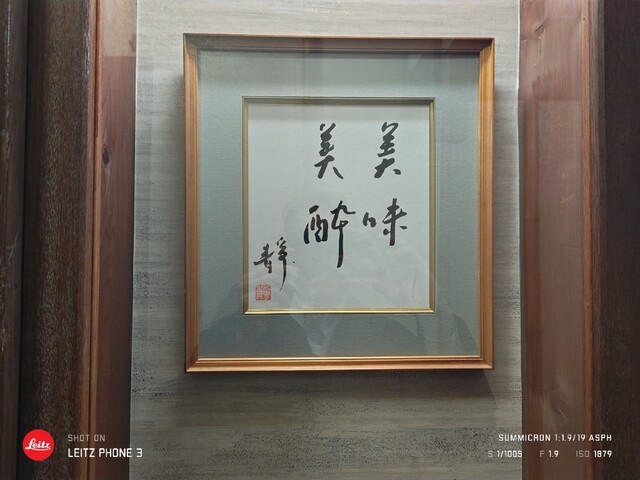 美味
美酔
静
Leitz
SHOT ON
LEITZ PHONE 3
SUMMICRON 1:1.9/19 ASPH
S 1/100S F 1.9 ISO 1879